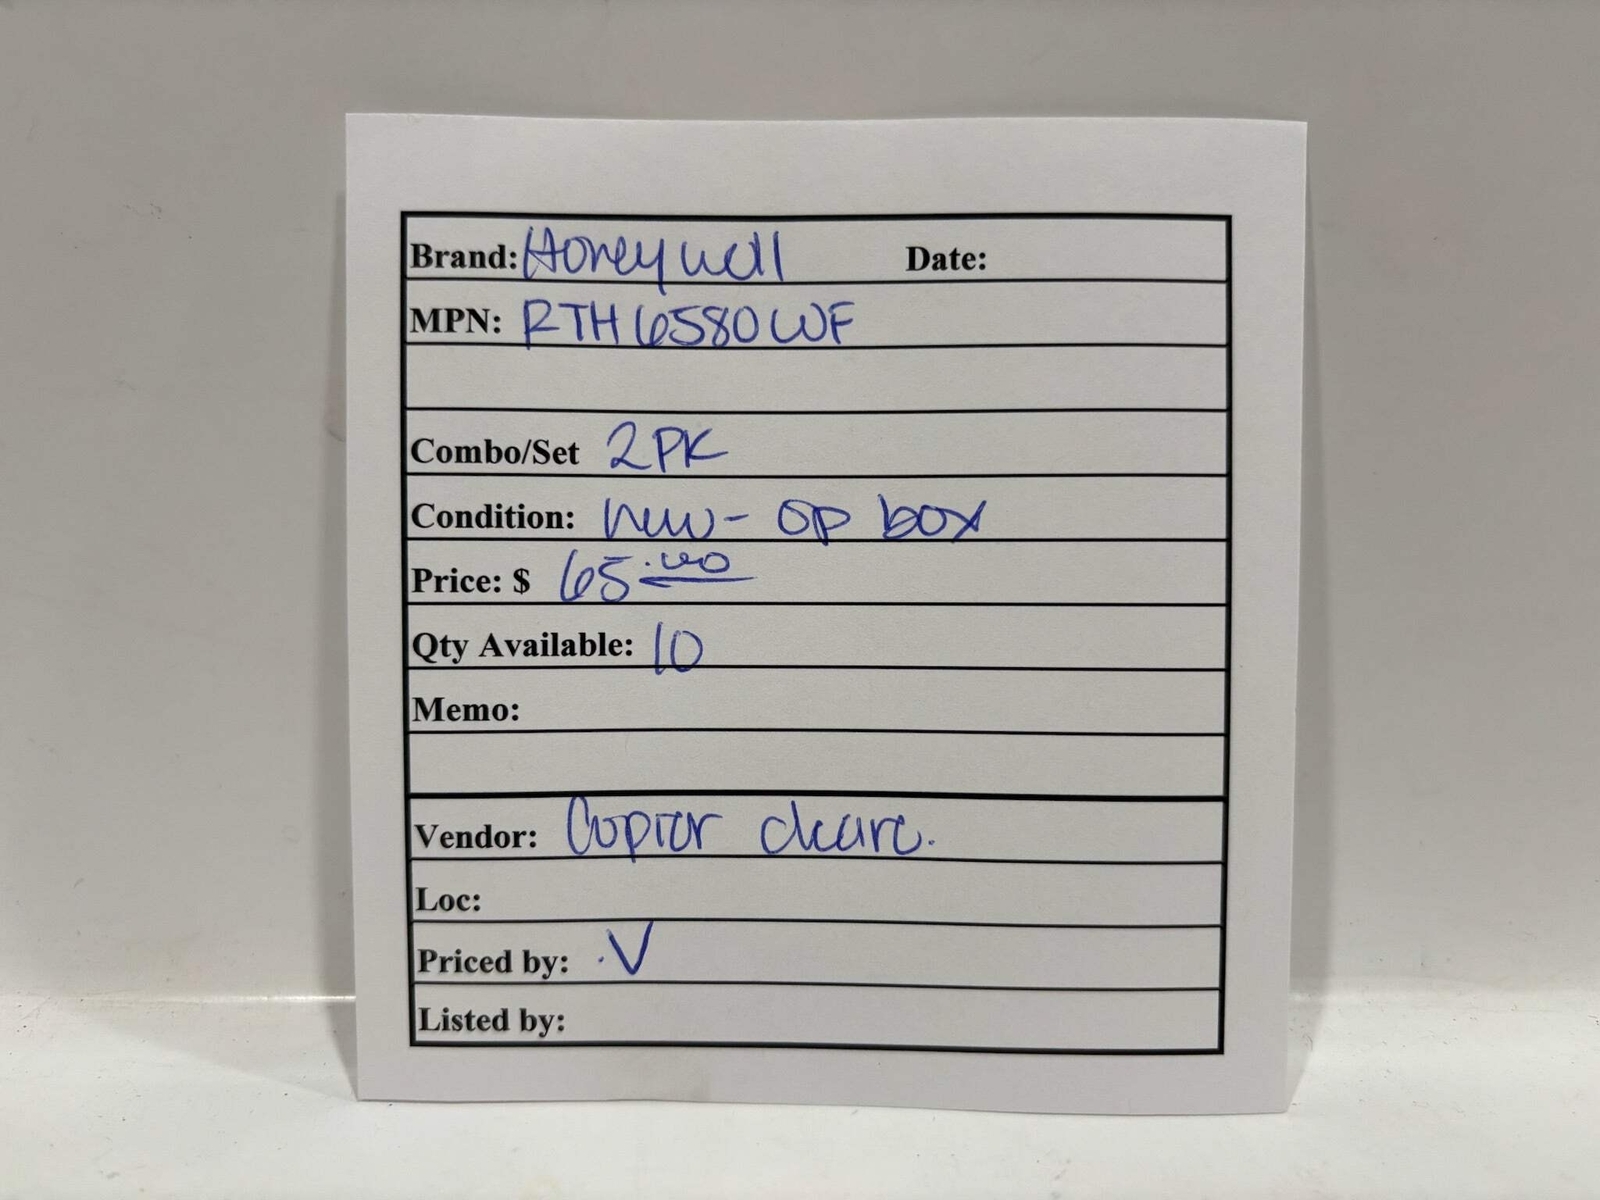 Brand: Honeywell Date:
MPN: RTH6580WF
Combo/Set 2PK
Condition: new- op box
Price: $ 65.00
Qty Available: 10
Memo:
Vendor: Copier
Loc:
Priced by: .V
Listed by: